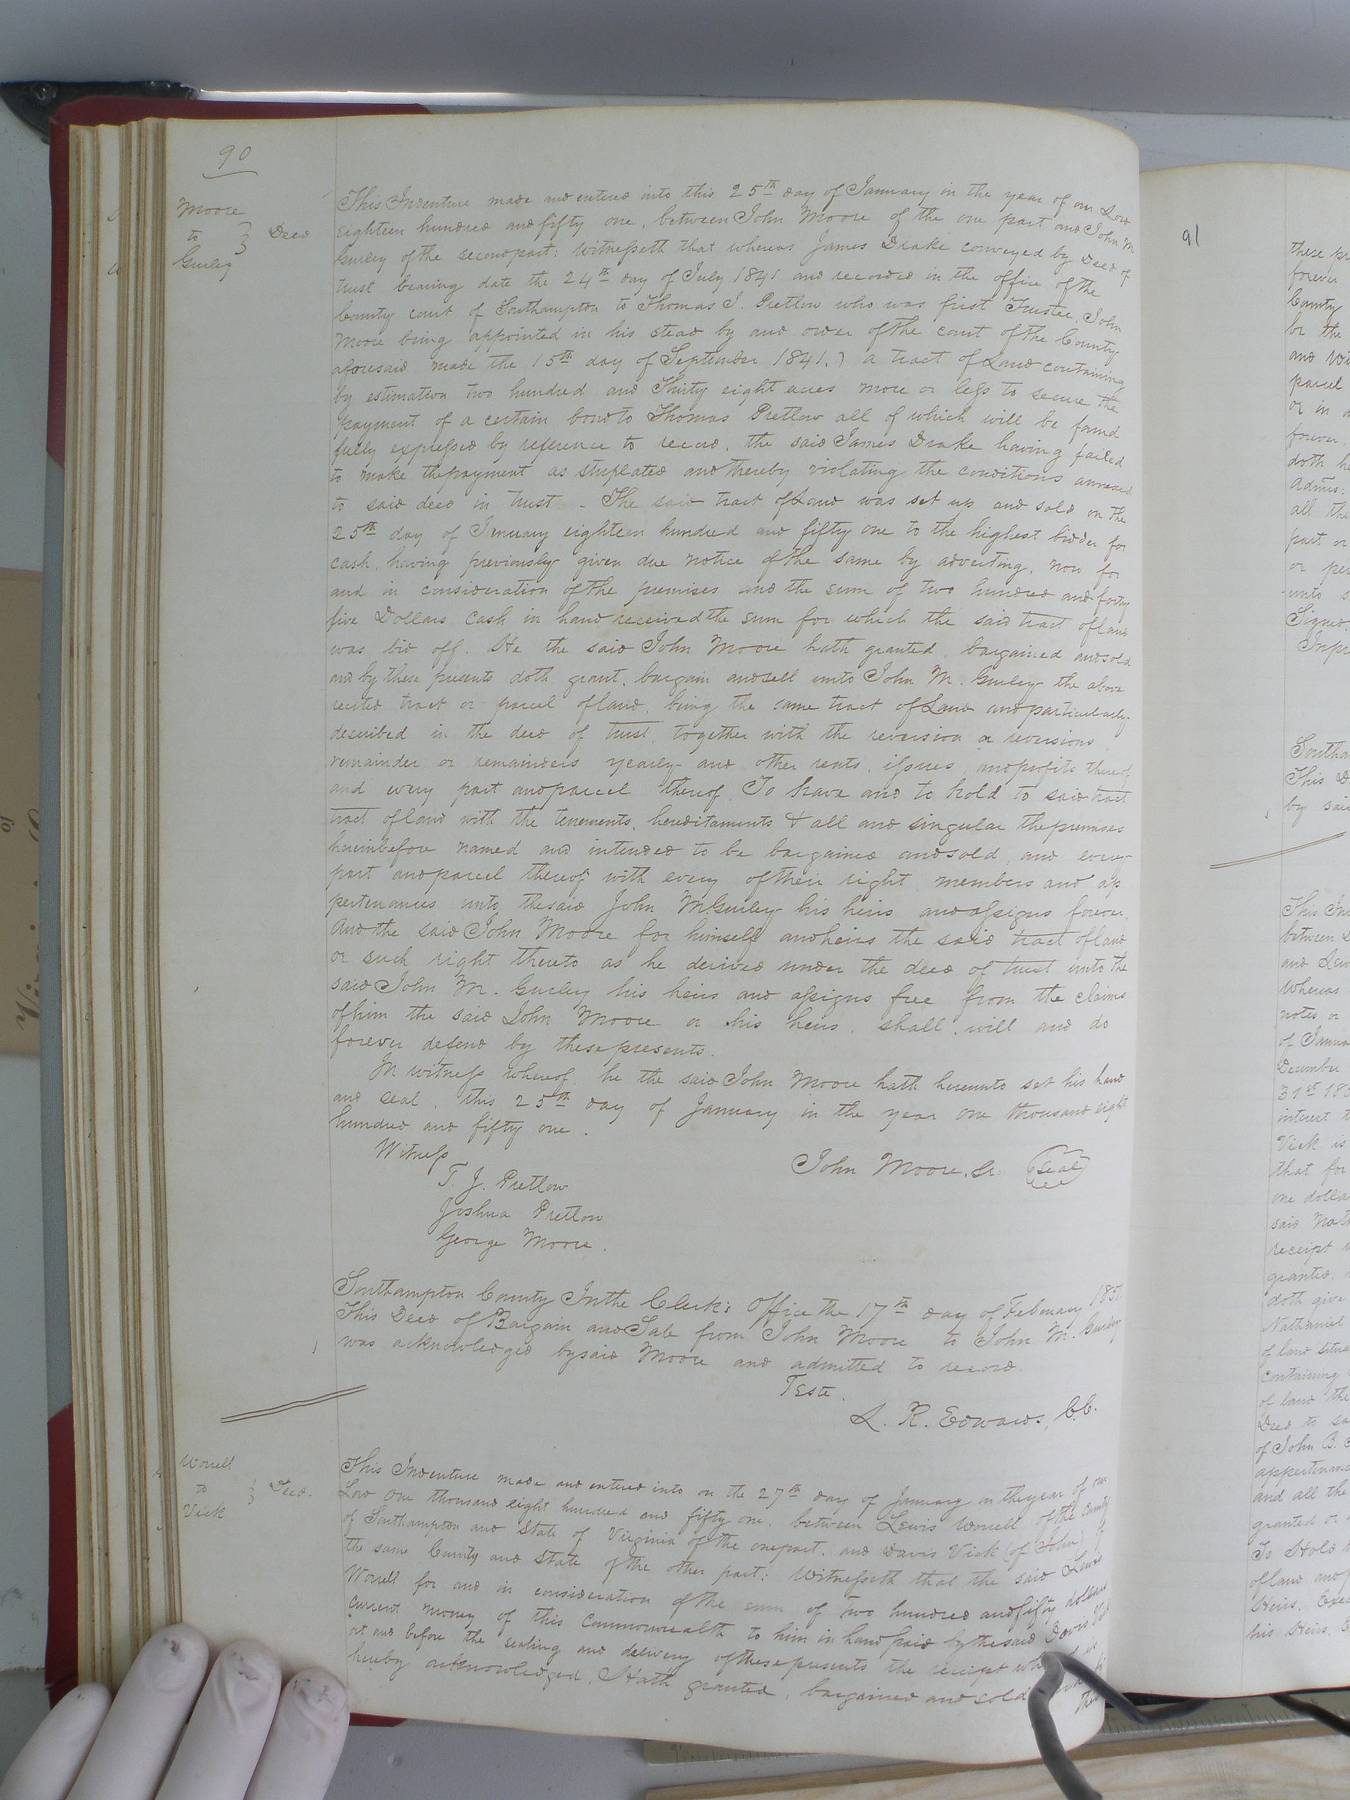 90
Moore
to } Deed
Gurley
This Indenture made and entered into this 25th day of January in the year of our Lord
Eighteen hundred and fifty one, between John Moore of the one part and John M.
Gurley of the second part: Witnesseth that whereas James Drake conveyed by Deed of
trust bearing date the 24th day of July 1841 and recorded in the office of the
County court of Southampton to Thomas J. Pretlow who was first Trustee, John
Moore being appointed in his stead by and order of the court of the County
aforesaid made the 15th day of September 1841.) a tract of Land containing
by estimation two hundred and Thirty eight acres more or less to secure the
payment of a certain bond to Thomas Pretlow all of which will be found
fully expressed by reference to record. the said James Drake having failed
to make the payment as stuplated and thereby violating the conditions annexed
to said deed in trust. The said tract of Land was set up and sold on the
25th day of January eighteen hundred and fifty one to the highest bidder for
cash, having previously given due notice of the same by adverting, now for
and in consideration of the premises and the sum of two hundred and forty
five Dollars cash in hand received the sum for which the said tract of land
was bid off. He the said John Moore hath granted, bargained and sold
and by these presents doth grant, bargain and sell unto John M. Gurley the above
recited tract or parcel of land, being the same tract of Land and particularly
described in the deed of trust, together with the reversion or reversions
remainder or remainders yearly and other rents, issues, and profits thereof
and every part and parcel thereof. To have and to hold to said tract
tract of land with the tenements, hereditaments & all and singular the premises
hereinbefore named and intended to be bargained and sold, and every
part and parcel thereof with every of their right members and ap
pertenances unto the said John M Gurley his heirs and assigns forever.
And the said John Moore for himself and heirs the said tract of land
or such right thereto as he derived under the deed of trust unto the
said John M. Gurley his heirs and assigns free from the claims
of him the said John Moore or his heirs, shall, will and do
forever defend by these presents.
In witness whereof, he the said John Moore hath hereunto set his hand
and seal, this 25th day of January in the year one thousand eight
hundred and fifty one.
Witness
John Moore, Sr. Seal
T. J. Pretlow
Joshua Pretlow
George Moore.
Southampton County In the Clerk's Office the 17th day of February 1851
This Deed of Bargain and Sale from John Moore to John M. Gurley
was acknowledged by said Moore and admitted to record.
Teste.
L. R. Edwards, C.C.
Worrell
to } Deed.
Vick
This Indenture made and entered into on the 27th day of January in the year of our
Lord One thousand eight hundred and fifty one, between Lewis Worrell of the County
of Southampton and State of Virginia of the one part, and Davis Vick (of John) of
the same County and State of the other part: Witnesseth that the said Lewis
Worrell for and in consideration of the sum of two hundred and fifty dollars
current money of this Commonwealth to him in hand paid by the said Davis Vick
at and before the sealing and delivery of these presents the receipt
hereby acknowledged, Hath granted, bargained and sold
91
forever
County
for the
parcel
forever.
doth
Adms:
all the
part or
unto
Signed
This Inden
between
Whereas
notes or
of Janua
December
31st 185
interest
Vick is
that for
one dolla
said Nat
receipt
granted,
doth give
Nathaniel
of land situa
containing
of land the
Deed to sa
of John B.
appertenan
and all the
granted or
To Hold
of land and
his Heirs,